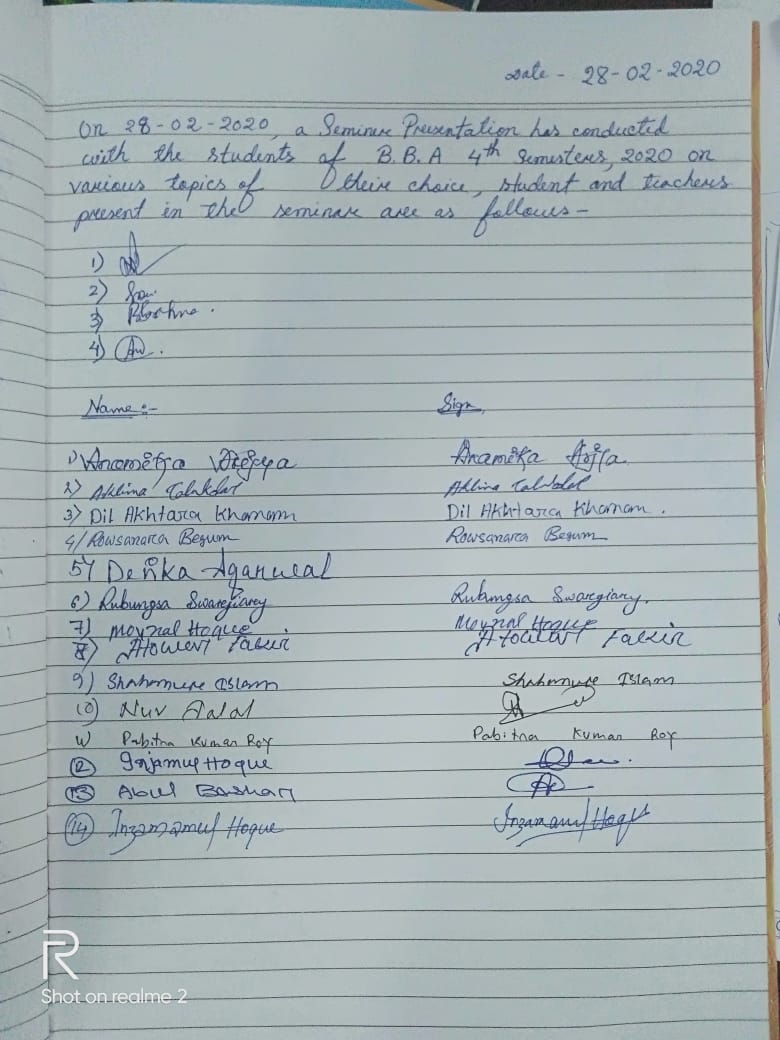 Date - 28-02-2020
On 28-02-2020, a Seminar Presentation has conducted
with the students of B.B.A 4th Semesters, 2020 on
various topics of their choice, student and teachers
present in the seminar are as follows-
1)
2)
3)
4)
Name :- Sign
1)
2) Aklima Talukdar Aklima Talukdar
3) Dil Akhtara Khanam Dil Akhtara Khanam.
4) Rowsanara Begum Rowsanara Begum
5) Agarwal
6) Rubungsa Swargiary Rubungsa Swargiary.
7) Moynal Hoque Moynal Hoque
8)
9) Islam Islam
10) Nur
11) Pabitra Kumar Roy Pabitra Kumar Roy
12 Injamul Hoque
13 Abul Bashar
14 Inzamamul Hoque Inzamamul Hoque
R
Shot on realme 2